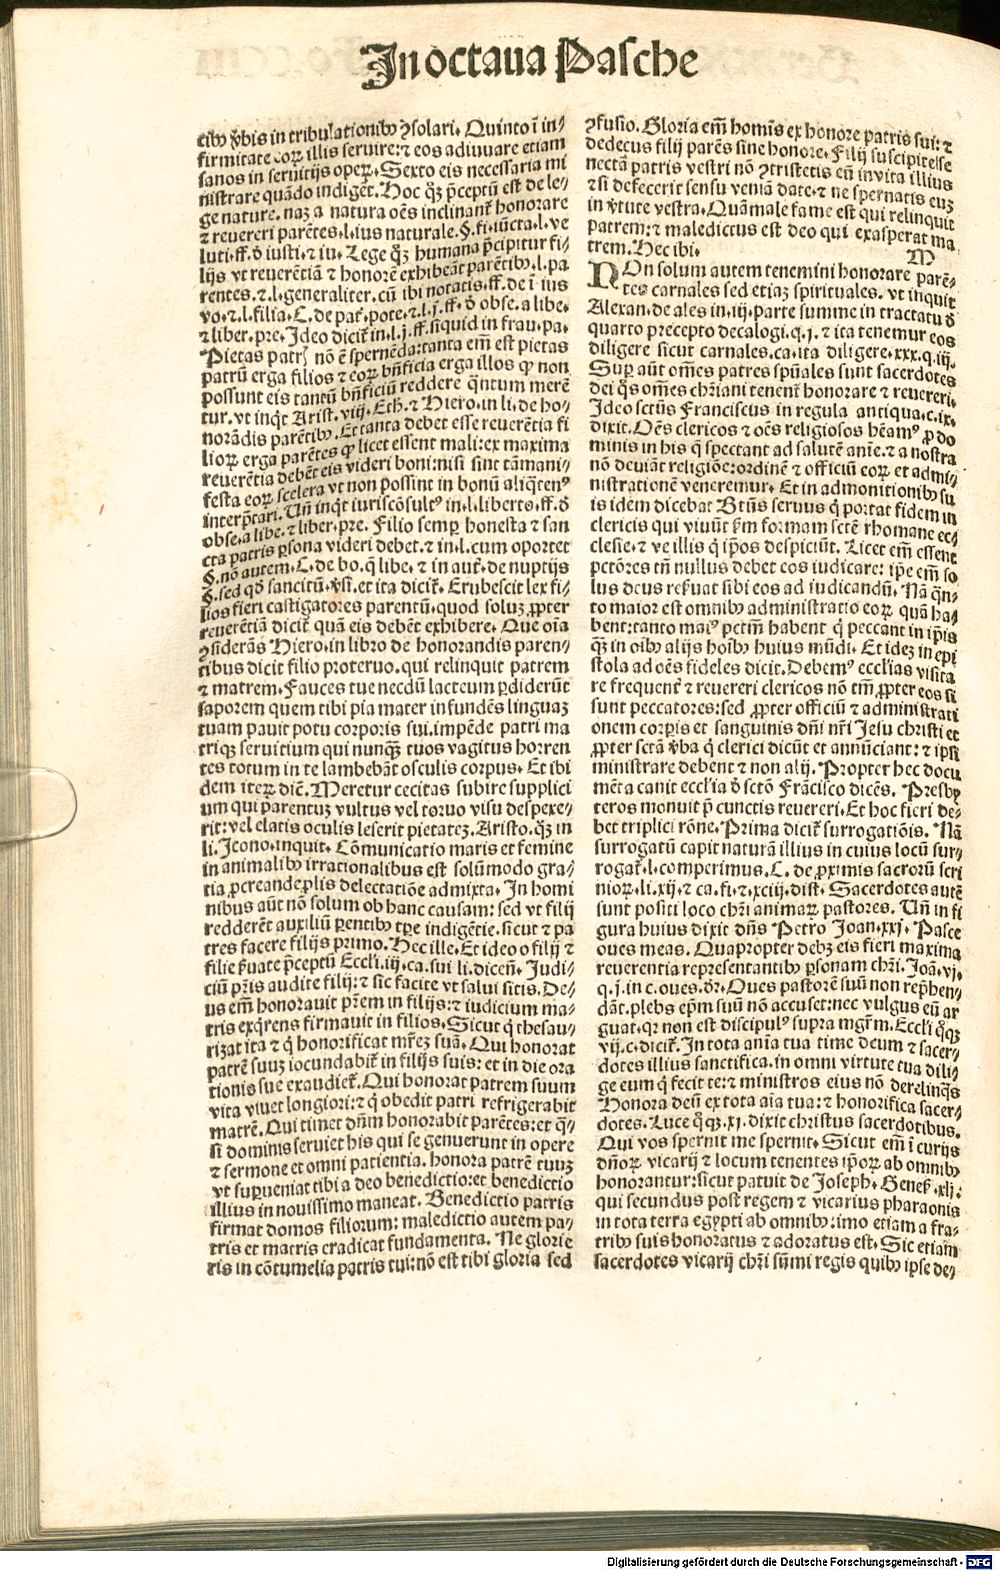 In octaua Pasche
tibꝰ v̄bis in tribulationibꝰ ꝯsolari. Quinto ī in-
firmitate eoꝝ illis seruire: ⁊ eos adiuuare etiam
sanos in seruitijs opeꝝ. Sexto eis necessaria mi
nistrare quādo indigēt. Hoc qꝫ p̄ceptū est de le-
ge nature. naꝫ a natura oēs inclinant̄ honorare
⁊ reuereri parētes. l. ius naturale. §. fi. iūcta. l. ve
luti. ff. ð iusti. ⁊ iu. Lege qꝫ humana p̄cipitur fi-
lijs vt reuerētiā ⁊ honorē exhibeāt parētibꝰ. l. pa
rentes. ⁊. l. generaliter. cū ibi notatis. ff. de ī ius
vo. ⁊. l. filia. C. de pat̄. pote. ⁊. l. j. ff. ð obse. a libe.
⁊ liber. pre. Ideo dicit̄ in. l. j. ff. si quid in frau. pa.
Pietas patrꝭ nō ē spernēda: tanta em̄ est pietas
patrū erga filios ⁊ eoꝝ bn̄ficia erga illos ꝙ non
possunt eis tantū bn̄ficiū reddere q̄ntum merē
tur. vt inq̇t Arist. viij. Eth. ⁊ Hiero. in li. de ho-
norādis parētibꝰ. Et tanta debet esse reuerētia fi
lioꝝ erga parētes ꝙ licet essent mali: ex maxima
reuerētia debēt eis videri boni: nisi sint tā mani-
festa eoꝝ scelera vt non possint in bonū aliq̇tenꝰ
interp̄tari. Un̄ inq̇t iuriscōsultꝰ in. l. liberto. ff. ð
obse. a libe. ⁊ liber. pre. Filio semꝑ honesta ⁊ san
cta patris ꝑsona videri debet. ⁊ in. l. cum oportet
§. nō autem. C. de bo. q̄ libe. ⁊ in aut̄. de nuptijs
§. sed qð sancitū. v̄si. et ita dicit̄. Erubescit lex fi-
lios fieri castigatores parentū. quod soluꝫ ꝓpter
reuerētiā dicit̄ quā eis debēt exhibere. Que oīa
ꝯsiderās Hiero. in libro de honorandis paren-
tibus dicit filio proteruo. qui relinquit patrem
⁊ matrem. Fauces tue necdū lacteum ꝑdiderūt
saporem quem tibi pia mater infundēs linguaꝫ
tuam pauit potu corporis sui. impēde patri ma
triqꝫ seruitium qui nunqꝫ tuos vagitus horren
tes totum in te lambebāt osculis corpus. Et ibi
dem iteꝝ diē. Meretur cecitas subire supplici
um qui parentuꝫ vultus vel toruo visu despexe-
rit: vel elatis oculis leserit pietateꝫ. Aristo. qꝫ in
li. Icono. inquit. Cōmunicatio maris et femine
in animalibꝰ irrationalibus est solūmodo gra-
tia ꝓcreande ꝓlis delectatiōe admixta. In homi
nibus aūt nō solum ob hanc causam: sed vt filij
redderēt auxiliū ꝑentibꝰ tp̄e indigētie. sicut ⁊ pa
tres facere filijs primo. Hec ille. Et ideo o filij ⁊
filie ẜuate p̄ceptū Eccłi. iij. ca. sui li. dicen̄. Judi-
ciū pr̄is audite filij: ⁊ sic facite vt salui sitis. De-
us em̄ honorauit pr̄em in filijs: ⁊ iudicium ma-
tris exq̇rens firmauit in filios. Sicut q̇ thesau-
rizat ita ⁊ q̇ honorificat mr̄eꝫ suā. Qui honorat
patrē suuꝫ iocundabit̄ in filijs suis: et in die ora
tionis sue exaudiet̄. Qui honorat patrem suum
vita viuet longiori: ⁊ q̇ obedit patri refrigerabit
matrē. Qui timet dn̄m honorabit parētes: et q̄-
si dominis seruiet his qui se genuerunt in opere
⁊ sermone et omni patientia. honora patrē tuuꝫ
vt suꝑueniat tibi a deo benedictio: et benedictio
illius in nouissimo maneat. Benedictio patris
firmat domos filiorum: maledictio autem pa-
tris et matris eradicat fundamenta. Ne glorie
ris in cōtumelia patris tui: nō est tibi gloria sed
ꝯfusio. Gloria em̄ homīs ex honore patris sui: ⁊
dedecus filij parēs sine honore. Filij suscipite se
nectā patris vestri nō ꝯtristetis eū in vita illius
⁊ si defecerit sensu veniā date. ⁊ ne spernatis euꝫ
in v̄tute vestra. Quā male fame est qui relinquit
patrem: ⁊ maledictus est deo qui exasperat ma
trem. Hec ibi. M
NOn solum autem tenemini honorare parē-
tes carnales sed etiaꝫ spirituales. vt inquit
Alexan. de ales in. iij. parte summe in tractatu ð
quarto precepto decalogi. q. j. ⁊ ita tenemur eos
diligere sicut carnales. ca. ita diligere. xxx. q. iij.
Suꝑ aūt om̄es patres spūales sunt sacerdotes
dei q̇s om̄es chr̄iani tenent̄ honorare ⁊ reuereri.
Ideo sctūs Franciscus in regula antiqua. c. ix.
dixit. Oēs clericos ⁊ oēs religiosos hēamꝰ ꝓ do
minis in his q̄ spectant ad salutē anīe. ⁊ a nostra
nō deuiāt religiōe: ordinē ⁊ officiū eoꝝ et admi-
nistrationē veneremur. Et in admonitionibꝰ su
is idem dicebat Btūs seruus q̇ portat fidem in
clericis qui viuūt ẜm formam sctē rhomane ec-
clesie. ⁊ ve illis q̇ ip̄os despiciūt. Licet em̄ essent
pctōres tn̄ nullus debet eos iudicare: ip̄e em̄ so
lus deus reẜuat sibi eos ad iudicandū. Nā q̄n-
to maior est omnibꝰ administratio eoꝝ quā ha-
bent: tanto maiꝰ pctm̄ habent q̇ peccant in ip̄is
qꝫ in oībꝰ alijs hoībꝰ huius mūdi. Et ideꝫ in epi
stola ad oēs fideles dicit. Debemꝰ eccłias visita
re frequent̄ ⁊ reuereri clericos nō tm̄ ꝓpter eos si
sunt peccatores: sed ꝓpter officiū ⁊ administrati
onem corꝑis et sanguinis dn̄i nr̄i Jesu christi et
ꝓpter sctā v̄ba q̄ clerici dicūt et annūciant: ⁊ ip̄si
ministrare debent ⁊ non alij. Propter hec docu
mēta canit eccłia ð sctō Frācisco dicēs. Presby
teros monuit p̄ cunctis reuereri. Et hoc fieri de-
bet triplici rōne. Prima dicit̄ surrogatiōis. Nā
surrogatū capit naturā illius in cuius locū sur-
rogat̄. l. comperimus. C. de ꝓximis sacrorū scri
nioꝝ. li. xij. ⁊ ca. fi. ⁊ xciij. dist. Sacerdotes autē
sunt positi loco chr̄i animaꝝ pastores. Un̄ in fi
gura huius dixit dn̄s Petro Joan. xxj. Pasce
oues meas. Quapropter debꝫ eis fieri maxima
reuerentia representantibꝰ ꝑsonam chr̄i. Joā. vj.
q. j. in c. oues. ðr. Oues pastorē suū non rep̄hen-
dāt. plebs ep̄m suū nō accuset: nec vulgus eū ar
guat. qꝛ non est discipulꝰ supra mgr̄m. Eccłi qꝫ
vij. c. dicit̄. In tota anīa tua time deum ⁊ sacer-
dotes illius sanctifica. in omni virtute tua dili-
ge eum q̇ fecit te: ⁊ ministros eius nō derelinq̇s
Honora deū ex tota aīa tua: ⁊ honorifica sacer-
dotes. Luce qꝫ. xj. dixit christus sacerdotibus.
Qui vos spernit me spernit. Sicut em̄ ī curijs
dn̄oꝝ vicarij ⁊ locum tenentes ip̄oꝝ ab omnibꝰ
honorantur: sicut patuit de Joseph. Geneẜ. xlj:
qui secundus post regem ⁊ vicarius pharaonis
in tota terra egypti ab omnibꝰ: imo etiam a fra-
tribꝰ suis honoratus ⁊ adoratus est. Sic etiam
sacerdotes vicarij chr̄i sūmi regis quibꝰ ip̄se de-
Digitalisierung gefördert durch die Deutsche Forschungsgemeinschaft - DFG